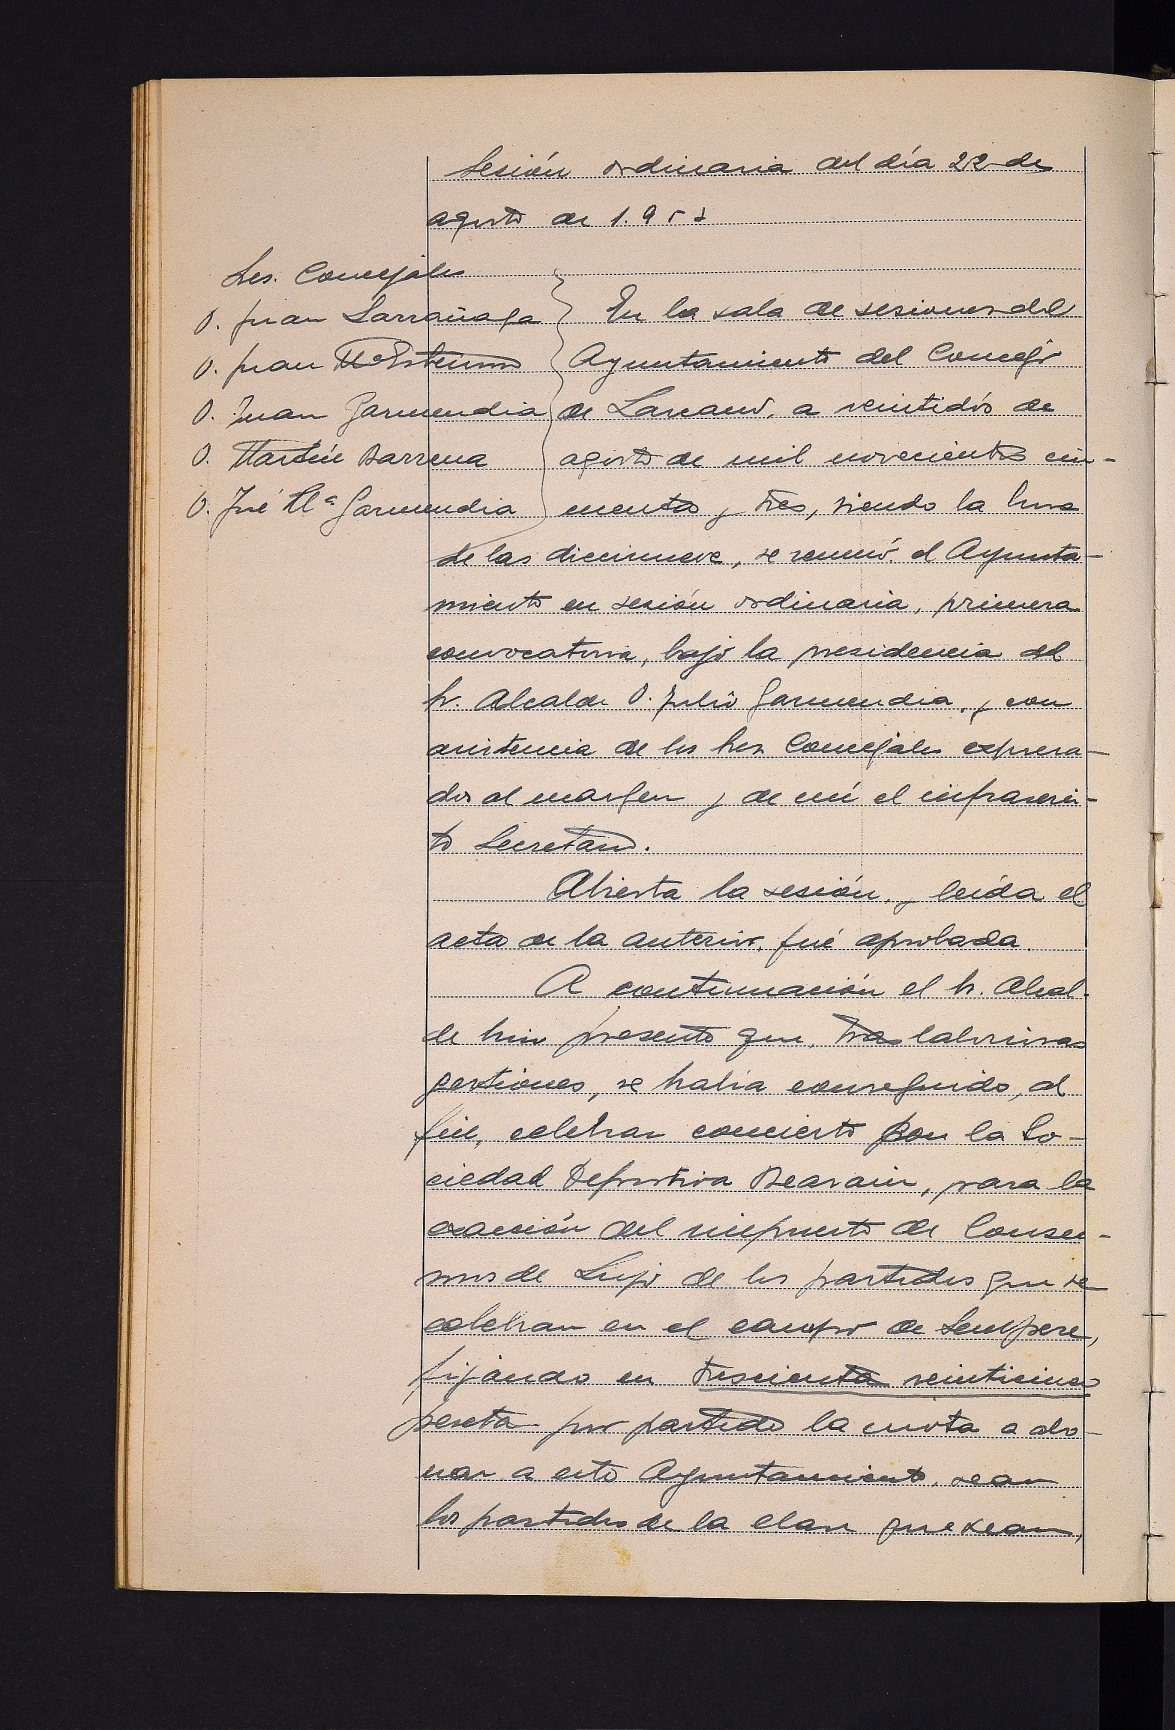 Sesión ordinaria del día 22 de
agosto de 1.953
Sres. Concejales
D. Juan Larrañaga
D. Juan Mª
D. Juan Garmendia
D. Martín Barrena
D. José Mª Garmendia
En la sala de sesiones del
Ayuntamiento del Concejo
de Lazcano, a veintidós de
agosto de mil novecientos cin-
cuenta y tres, siendo la hora
de las diecinueve, se reunió el Ayunta-
miento en sesión ordinaria, primera
convocatoria, bajo la presidencia del
Sr. Alcalde D. Julio Garmendia, y con
asistencia de los Sres. Concejales expresa-
dos al margen y de mí el infrascri-
to Secretario.
Abierta la sesión, y leída el
acta de la anterior, fué aprobada.
A continuación el Sr. Alcal-
de hizo presente que, tras laboriosas
gestiones, se había conseguido, al
fin, celebrar concierto con la So-
ciedad Deportiva Beasain, para la
exacción del impuesto de Consu-
mos de Lujo de los partidos que se
celebran en el campo de Sempere,
fijando en trescienta veinticinco
peseta por partido la cuota a abo-
nar a este Ayuntamiento, sean
los partidos de la clase que sean,